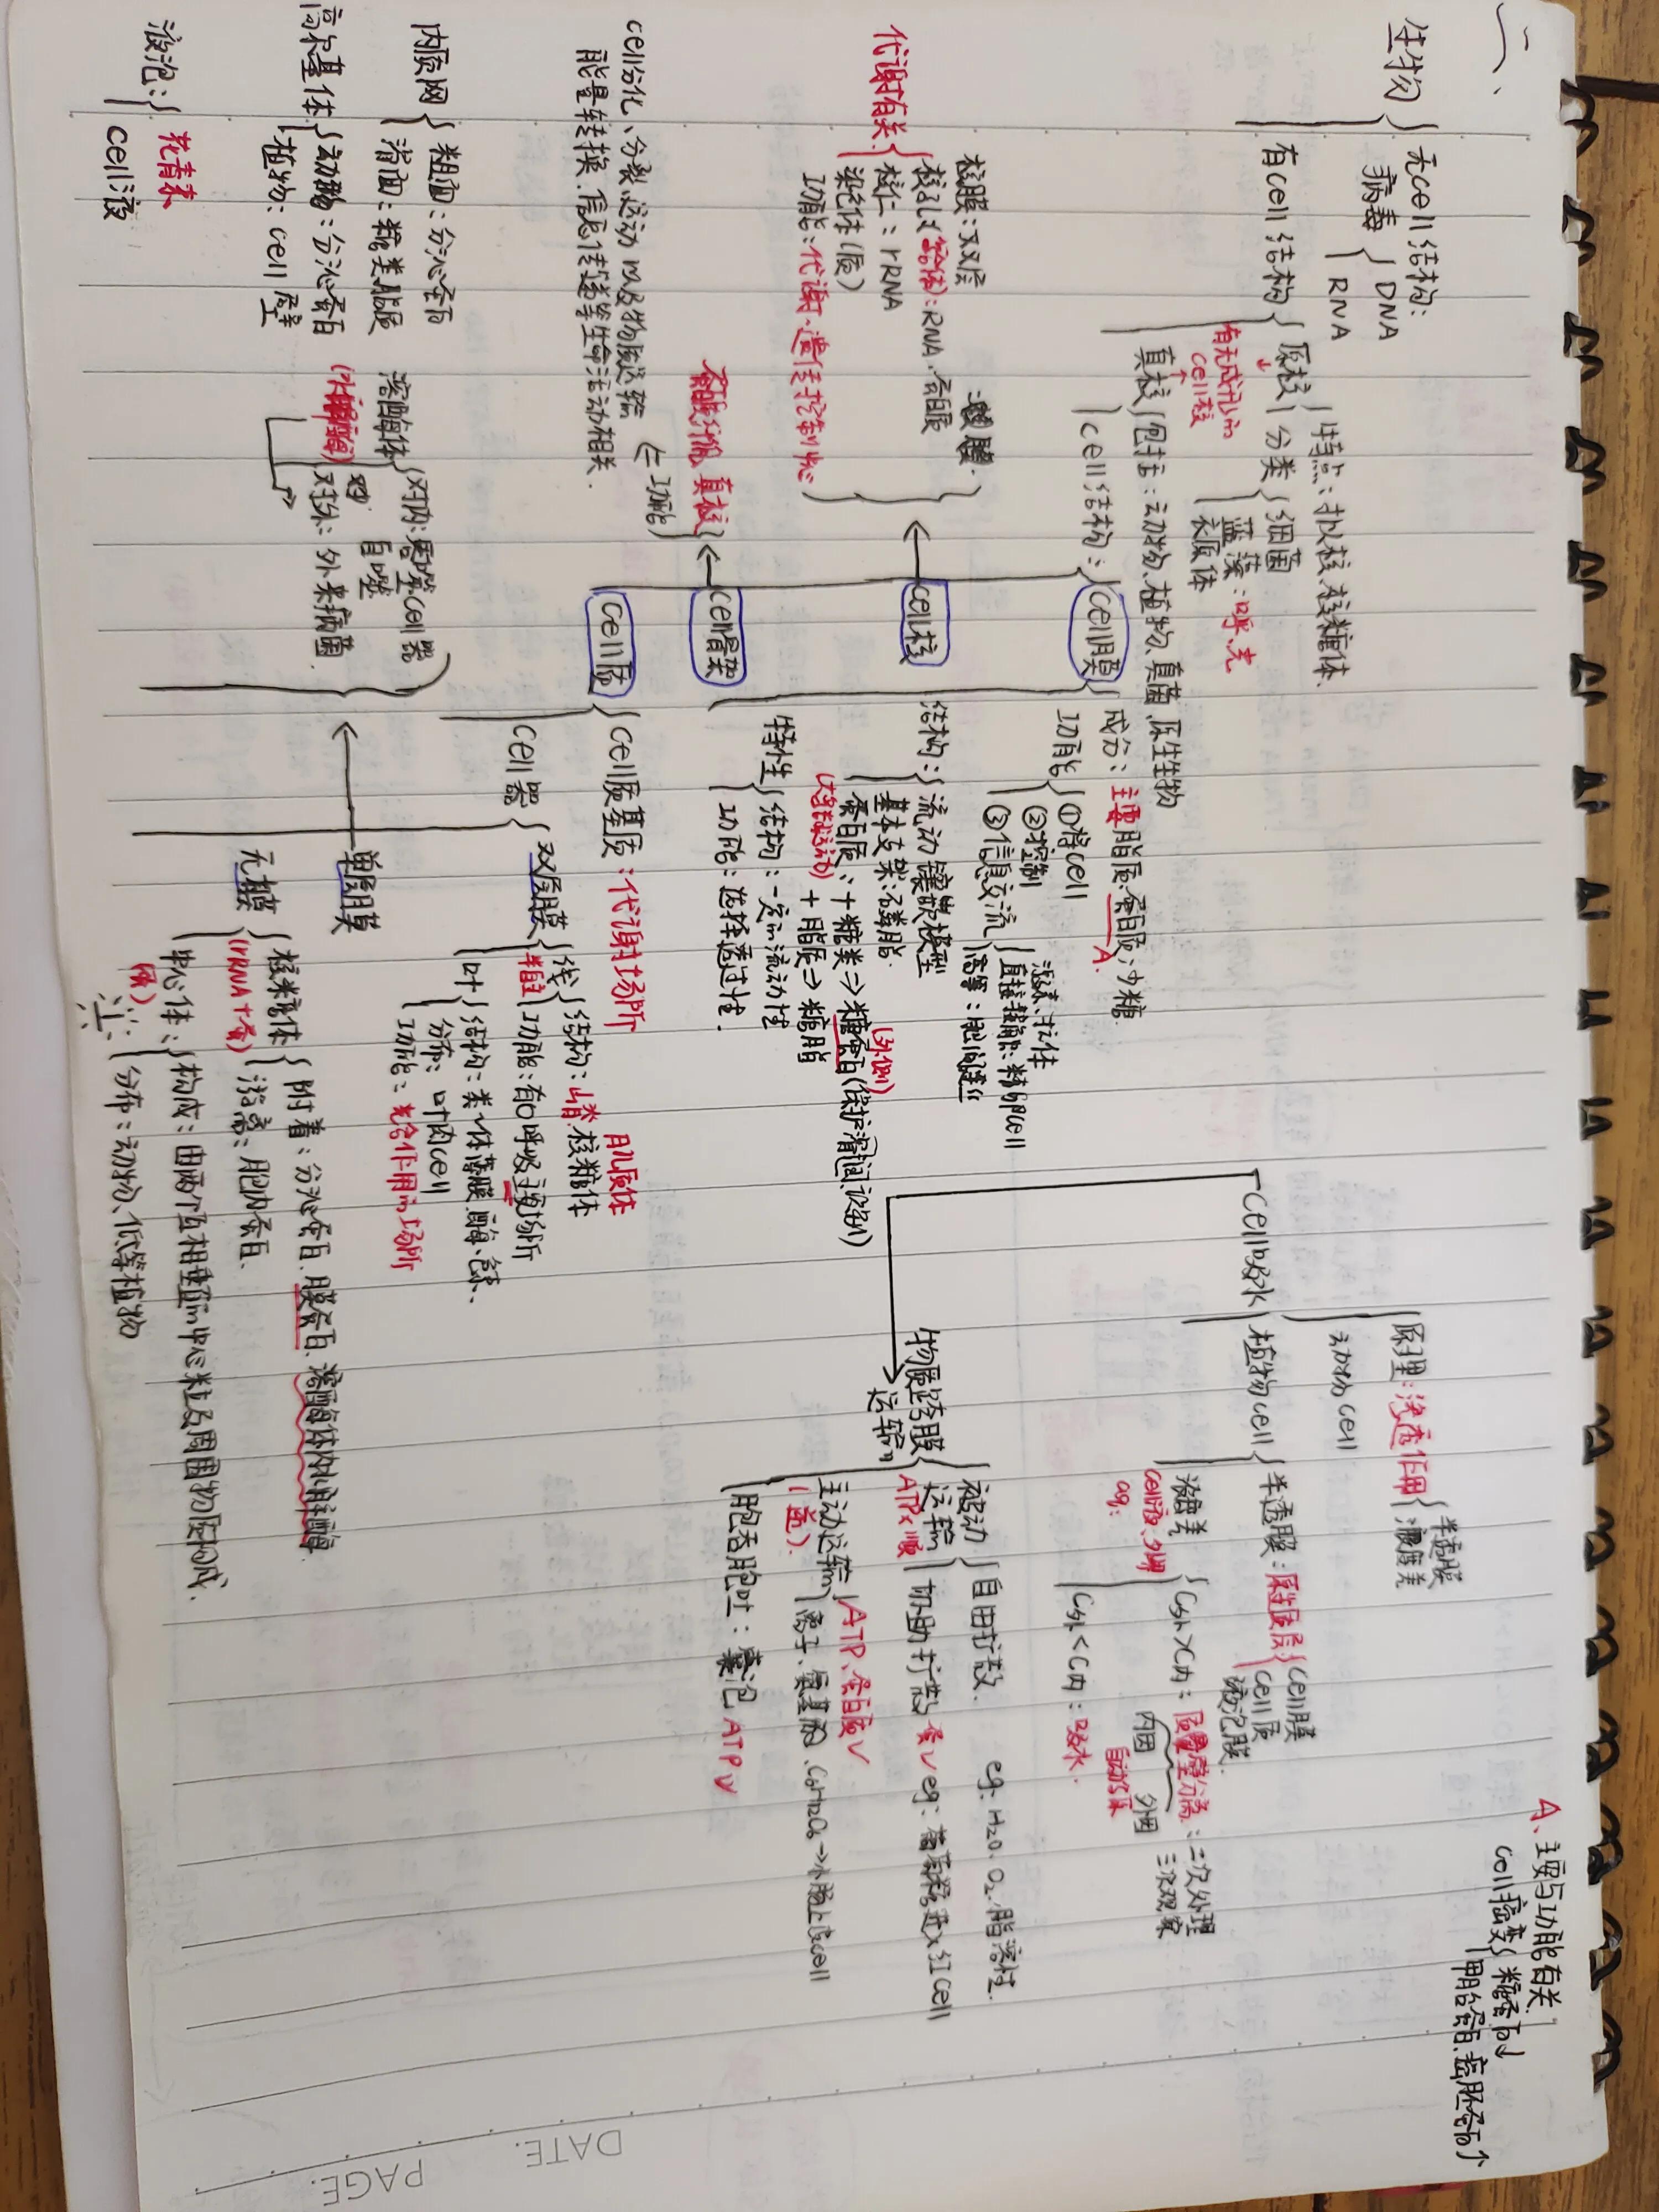 二、
生物
无cell结构：
病毒
DNA
RNA
有cell结构
原核
特点：拟核、核糖体
分类
细菌
蓝藻：呼、光
衣原体
有无成形的
cell核
真核
包括：动物、植物、真菌、原生生物
cell结构：
cell膜
成分：主要脂质、蛋白质、少糖
A.
功能
①将cell
②控制
③信息交流
激素、抗体
直接接触：精卵cell
高等：胞间连丝
结构：
流动镶嵌模型
基本支架：磷脂
蛋白质：＋糖类⇒糖蛋白(保护润滑识别)
(外侧)
(大多能运动)
＋脂质⇒糖脂
特性
结构：一定的流动性
功能：选择透过性.
cell核
核膜：双层
核孔(选择)：RNA、蛋白质
核仁：rRNA
染色体(质)
功能：代谢、遗传控制中心
代谢有关
cell骨架
蛋白质纤维
真核
⇐功能
cell分化、分裂、运动以及物质运输
能量转换、信息传递等生命活动相关.
cell质
cell质基质：代谢场所
cell器
双层膜
线
半自主
结构：嵴、核糖体
肌质体
功能：有O呼吸主要场所
叶
结构：类个体薄膜、酶、色素.
分布：叶肉cell
功能：光合作用的场所
单层膜
内质网
粗面：分泌蛋白
滑面：糖类、脂质
高尔基体
动物：分泌蛋白
植物：cell壁
液泡：
花青素
cell液
溶酶体
(水解酶)
对内：衰老cell器
自噬
对外：外来病菌.
无膜
核糖体
(rRNA＋蛋)
附着：分泌蛋白、膜蛋白、溶酶体内水解酶
游离：胞内蛋白.
中心体：
构成：由两个互相垂直的中心粒及周围物质构成.
分布：动物、低等植物
cell吸水
原理：渗透作用
半透膜
浓度差
动物cell
植物cell
半透膜：原生质层
cell膜
cell质
液泡膜.
浓度差
cell液、外界
C外>C内：质壁分离：二次处理
三次观察
内因
外因
自动复原
C外<C内：吸水.
物质跨膜
运输
被动
运输
ATP×顺
自由扩散.
eg：H2O、O2、脂溶性.
协助扩散 蛋√ eg：葡萄糖进入红cell
主动运输
(逆).
ATP、蛋白质√
离子、氨基酸、C6H12O6→小肠上皮cell
胞吞胞吐：囊泡 ATP√
A、主要与功能有关.
cell癌变
糖蛋白↓
甲胎蛋白、癌胚蛋白↑
DATE.
PAGE.